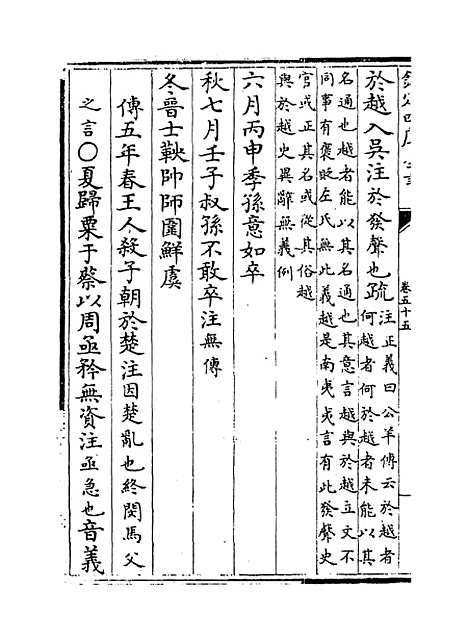 欽定四庫全書
卷五十五
於越入吳注於發聲也疏
注正義曰公羊傳云於越者
何越者何於越者未能以其
名通也越者能以其名通也其意言越與於越立文不
同事有褒貶左氏無此義越是南夷夷言有此發聲史
官或正其名或從其俗越
與於越史異辭無義例
六月丙申季孫意如卒
秋七月壬子叔孫不敢卒注無傳
冬晉士鞅帥師圍鮮虞
傳五年春王人殺子朝於楚注因楚亂也終閔馬父
之言○夏歸粟于蔡以周亟矜無資注亟急也音義